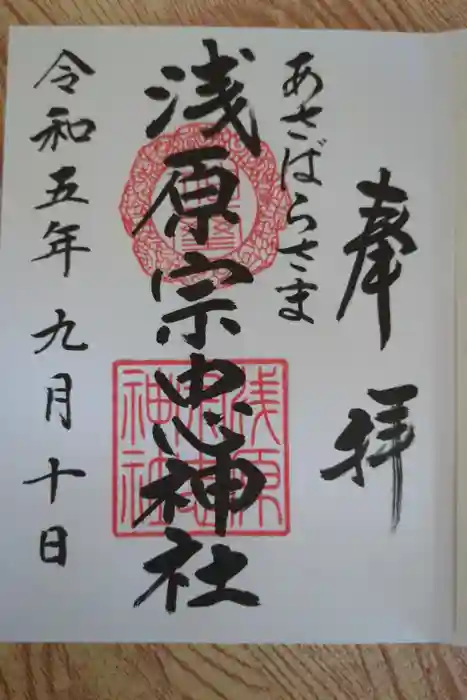 奉拝
あさばらさま
浅原宗忠神社
令和五年九月十日
浅原
宗忠
神社